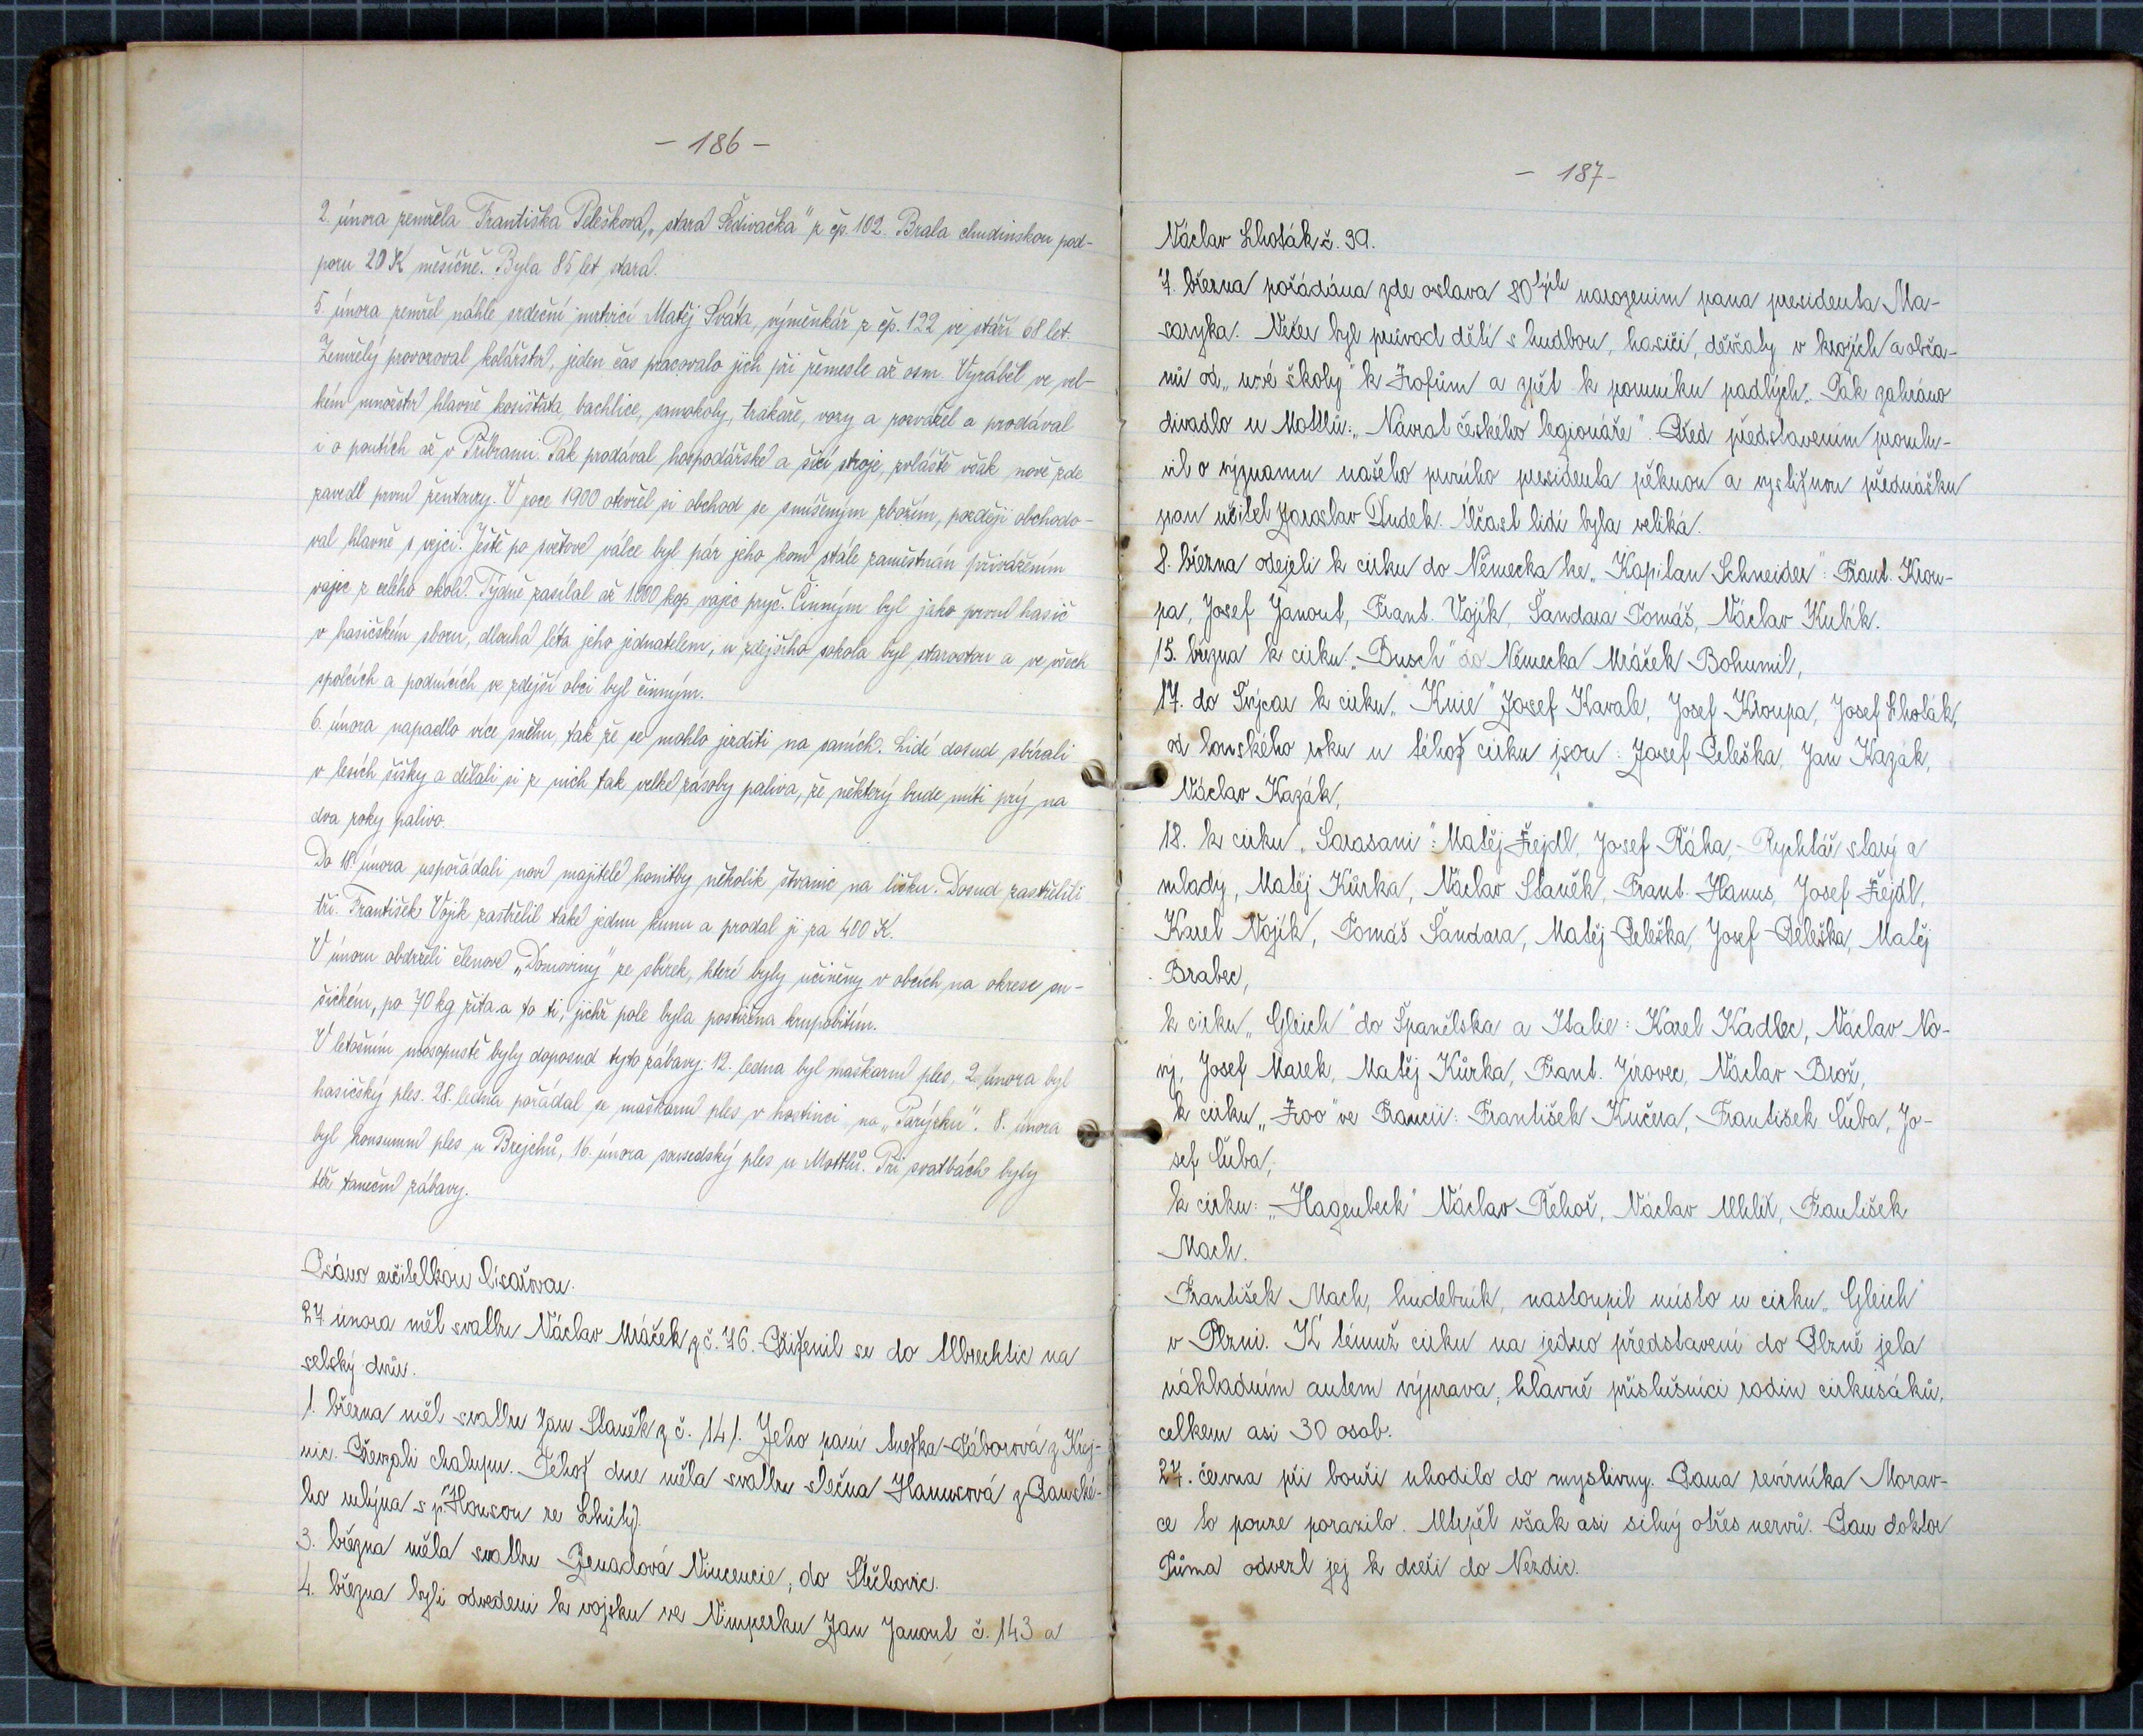 - 186 -
2. února zemřela Františka Pelešková, „stará Šedivačka" z čp. 102. Brala chudinskou pod-
poru 20 K měsíčně. Byla 85 let stará.
5. února zemřel náhle srdeční mrtvicí Matěj Sváta, výměnkář z čp. 122 ve stáří 68 let.
Zemřelý provozoval kolářství, jeden čas pracovalo jich při řemesle až osm. Vyráběl ve vel-
kém množství hlavně kosišťata, bachlice, samokoly, trakaře, vozy a rozvážel a prodával
i o poutích až v Příbrami. Pak prodával hospodářské a šicí stroje, zvláště však nově zde
zavedl první žentoury. V roce 1900 otevřel si obchod se smíšeným zbožím, později obchodo-
val hlavně s vejci. Ještě po světové válce byl pár jeho koní stále zaměstnán přivážením
vajec z celého okolí. Týdně zasílal až 1.000 kop vajec pryč. Činným byl jako první hasič
v hasičském sboru, dlouhá léta jeho jednatelem, u zdejšího sokola byl starostou a ve všech
spolcích a podnicích ve zdejší obci byl činným.
6. února napadlo více sněhu, tak že se mohlo jezditi na saních. Lidé dosud sbírali
v lesích šišky a dělali si z nich tak velké zásoby paliva, že některý bude míti prý na
dva roky palivo.
Do 18. února uspořádali noví majitelé honitby několik štvanic na lišku. Dosud zastřelili
tři. František Vojík zastřelil také jednu kunu a prodal ji za 400 K.
V únoru obdrželi členové „Domoviny" ze sbírek, které byly učiněny v obcích na okrese su-
šickém, po 70 kg žita a to ti, jichž pole byla postižena krupobitím.
V letošním masopustě byly doposud tyto zábavy: 12. ledna byl maškarní ples, 2. února byl
hasičský ples. 28. ledna pořádal se maškarní ples v hostinci na „Parýzku". 8. února
byl konsumní ples u Brejchů, 16. února sousedský ples u Mottlů. Při svatbách byly
též taneční zábavy.
Psáno učitelkou Císařovou.
27 února měl svatbu Václav Mráček z č. 76. Přiženil se do Albrechtic na
selský dvůr.
1. března měl svatbu Jan Staněk z č. 141. Jeho paní Anežka Táborová z Krej-
nic. Převzali chalupu. Téhož dne měla svatbu slečna Hanusová z Panské-
ho mlýna s p. Housou ze Lhůty.
3. března měla svatbu Zenadová Vincencie, do Stěchovic.
4. března byli odvedeni k vojsku ve Vimperku Jan Janout č. 143 a
- 187 -
Václav Lhoták č. 39.
7. března pořádána zde oslava 80tých narozenin pana presidenta Ma-
saryka. Večer byl průvod dětí s hudbou, hasiči, děvčaty v krojích a obča-
nů od „nové školy" k Frofům a zpět k pomníku padlých. Pak zahráno
divadlo u Mottlů: „Návrat českého legionáře". Před představením promlu-
vil o významu našeho prvního presidenta pěknou a výstižnou přednášku
pan učitel Jaroslav Dudek. Účast lidí byla veliká.
8. března odejeli k cirku do Německa ke „Kapitan Schneider": Frant. Krou-
pa, Josef Janout, Frant. Vojík, Šandara Tomáš, Václav Kubík.
15. března k cirku „Busch" do Německa Mráček Bohumil,
17. do Švýcar k cirku „Knie" Josef Kavale, Josef Kroupa, Josef Lhoták,
od loňského roku u téhož cirku jsou: Josef Peleška, Jan Kazák,
Václav Kazák,
18. k cirku „Sarasani": Matěj Fejdl, Josef Ráha, Rychtář starý a
mladý, Matěj Kůrka, Václav Staněk, Frant. Hanus, Josef Fejdl,
Karel Vojík, Tomáš Šandara, Matěj Peleška, Josef Peleška, Matěj
Brabec,
k cirku „Gleich" do Španělska a Italie: Karel Kadlec, Václav No-
vý, Josef Marek, Matěj Kůrka, Frant. Jírovec, Václav Brož,
k cirku „Zoo" ve Francii: František Kučera, František Čuba, Jo-
sef Čuba,
k cirku: „Hagenbeck" Václav Řehoř, Václav Uhlíř, František
Mach.
František Mach, hudebník, nastoupil místo u cirku „Gleich"
v Plzni. K témuž cirku na jedno představení do Plzně jela
nákladním autem výprava, hlavně příslušníci rodin cirkusáků,
celkem asi 30 osob.
27. června při bouři uhodilo do myslivny. Pana revírníka Morav-
ce to pouze porazilo. Utrpěl však asi silný otřes nervů. Pan doktor
Tůma odvezl jej k dceři do Nezdic.